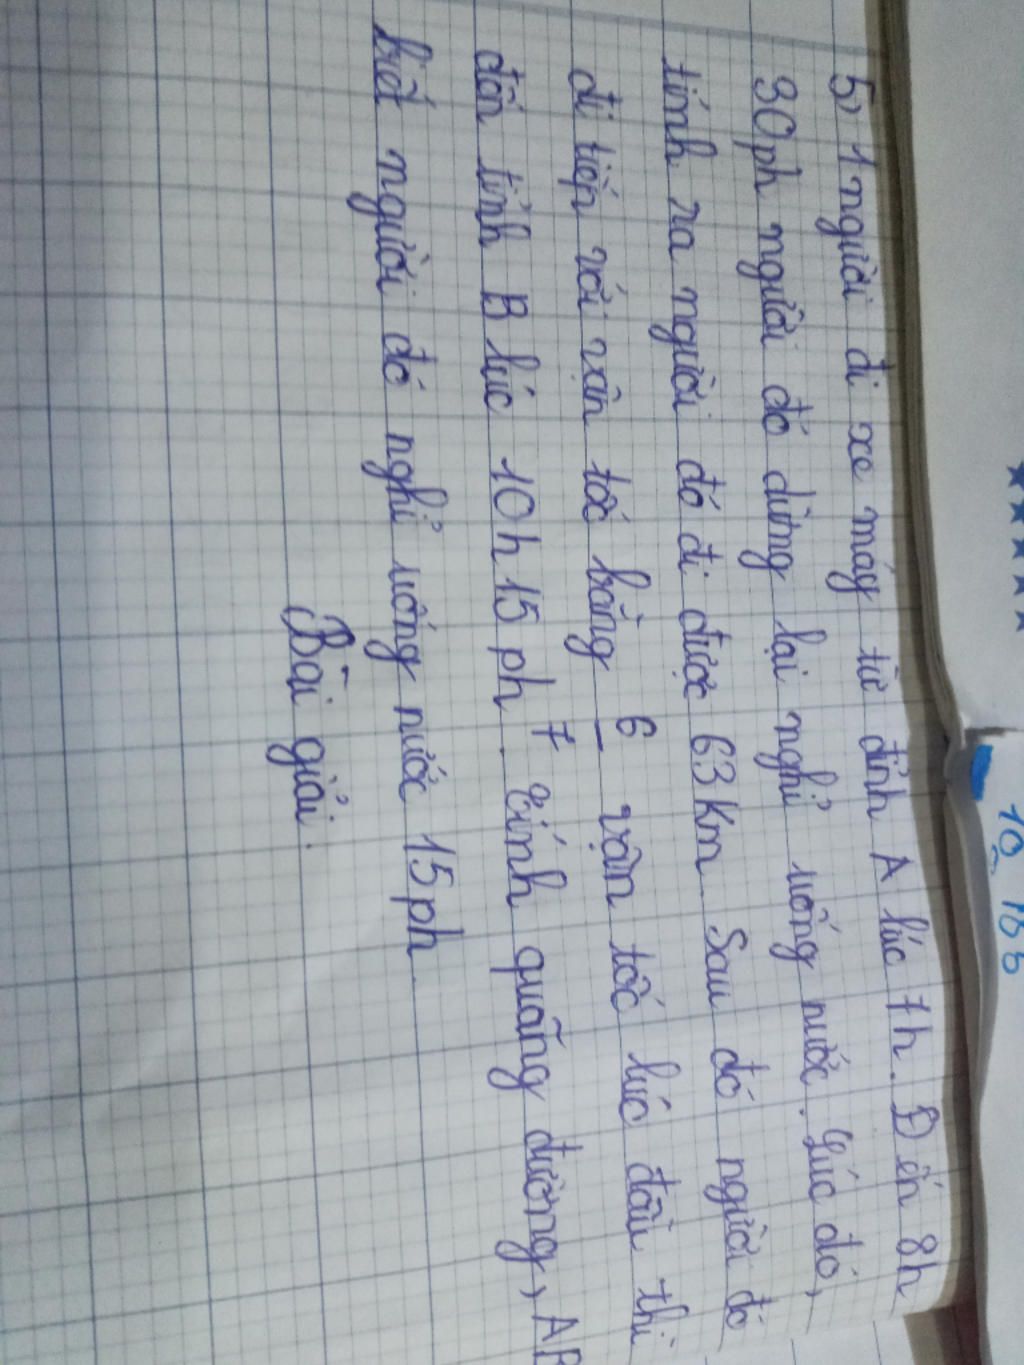 5) 1 người đi xe máy từ đỉnh A lúc 7h. Đến 8h
30ph người đó dừng lại nghỉ uống nước. Lúc đó,
tính ra người đó đi được 63Km Sau đó người đó
đi tiếp với vận tốc bằng 6/7 vận tốc lúc đầu thì
đến tỉnh B lúc 10h15ph. Tính quãng đường, AB
biết người đó nghỉ uống nước 15ph
Bài giải.
10